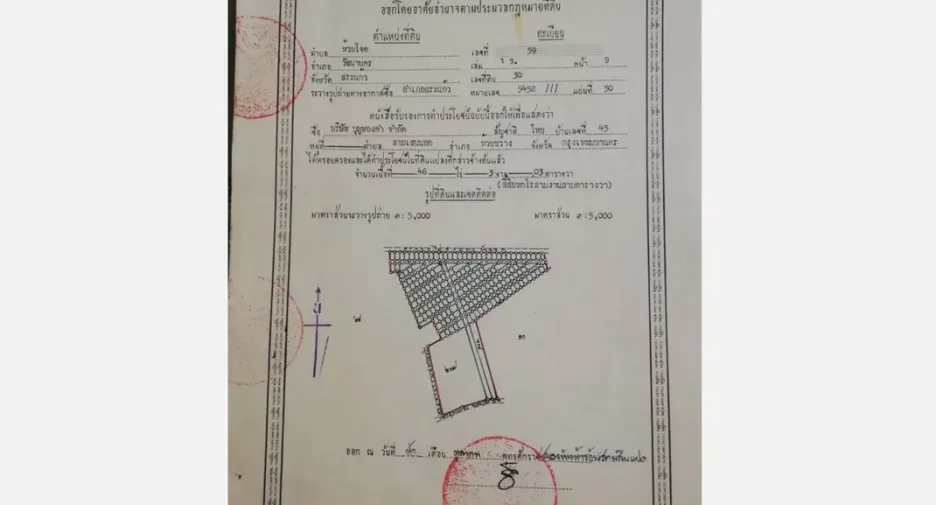 ออกโดยอาศัยอำนาจตามประมวลกฎหมายที่ดิน
ตำแหน่งที่ดิน ทะเบียน
ตำบล ห้วยโจด เลขที่ 59
อำเภอ วัฒนานคร เล่ม 1 ข. หน้า 9
จังหวัด สระแก้ว เลขที่ดิน 30
ระวางรูปถ่ายทางอากาศชื่อ อำเภอสระแก้ว หมายเลข 5452 III แผ่นที่ 50
หนังสือรับรองการทำประโยชน์ฉบับนี้ออกให้เพื่อแสดงว่า
ชื่อ บริษัท บุญทองคำ จำกัด สัญชาติ ไทย บ้านเลขที่ 45
หมู่ที่ ตำบล สามเสนนอก อำเภอ ห้วยขวาง จังหวัด กรุงเทพมหานคร
ได้ครอบครองและได้ทำประโยชน์ในที่ดินแปลงที่กล่าวข้างต้นแล้ว
จำนวนเนื้อที่ 46 ไร่ 3 งาน 03 ตารางวา
(สี่สิบหกไร่สามงานสามตารางวา)
รูปที่ดินและเขตติดต่อ
มาตราส่วนระวางรูปถ่าย ๑: 5,000 มาตราส่วน ๑:5,000
น
๒๘
๓๐
๒๑๗
ออก ณ วันที่ หก เดือน ตุลาคม พุทธศักราช